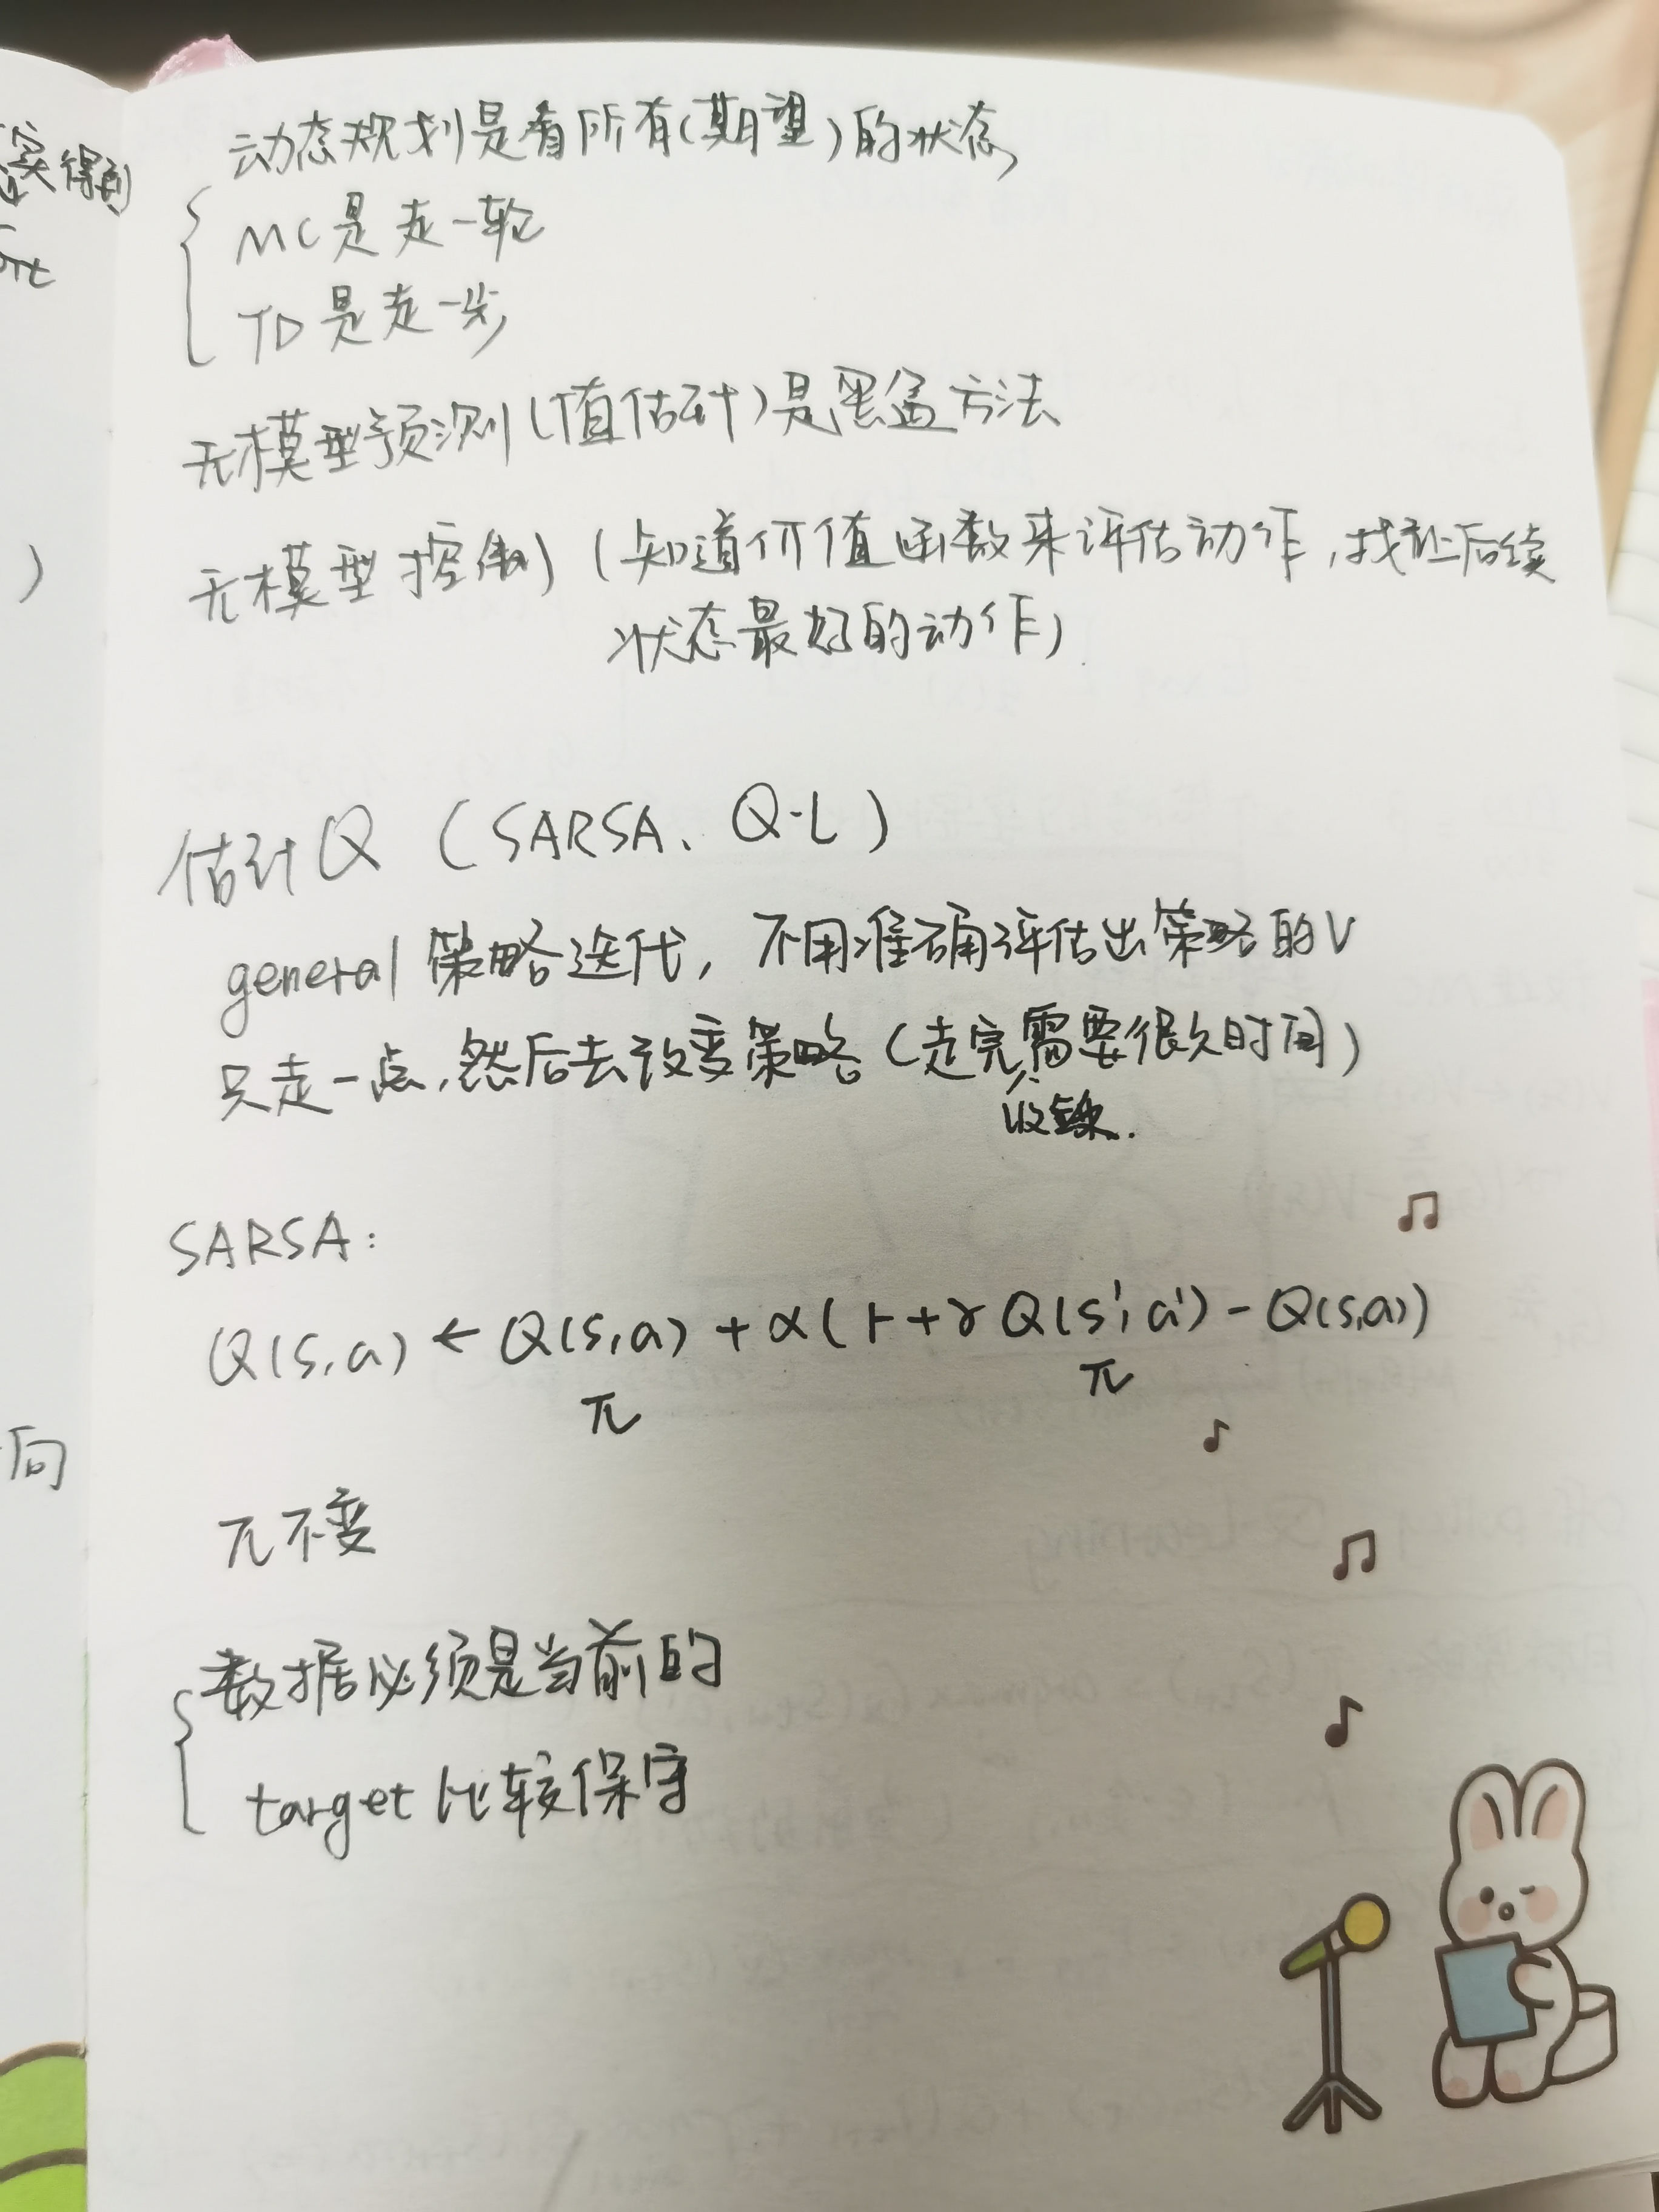 动态规划是看所有(期望)的状态
MC是走一轮
TD是走一步
无模型预测(值估计)是黑盒方法
无模型控制(知道价值函数来评估动作,找让后续
状态最好的动作)
估计Q (SARSA、Q-L)
general 策略迭代,不用准确评估出策略的V
只走一点,然后去改变策略(走完需要很久时间)
收敛.
SARSA:
Q(s,a) ← Q(s,a) + α(r+γQ(s',a')-Q(s,a))
π π
π不变
数据必须是当前的
target比较保守
得到
)
向